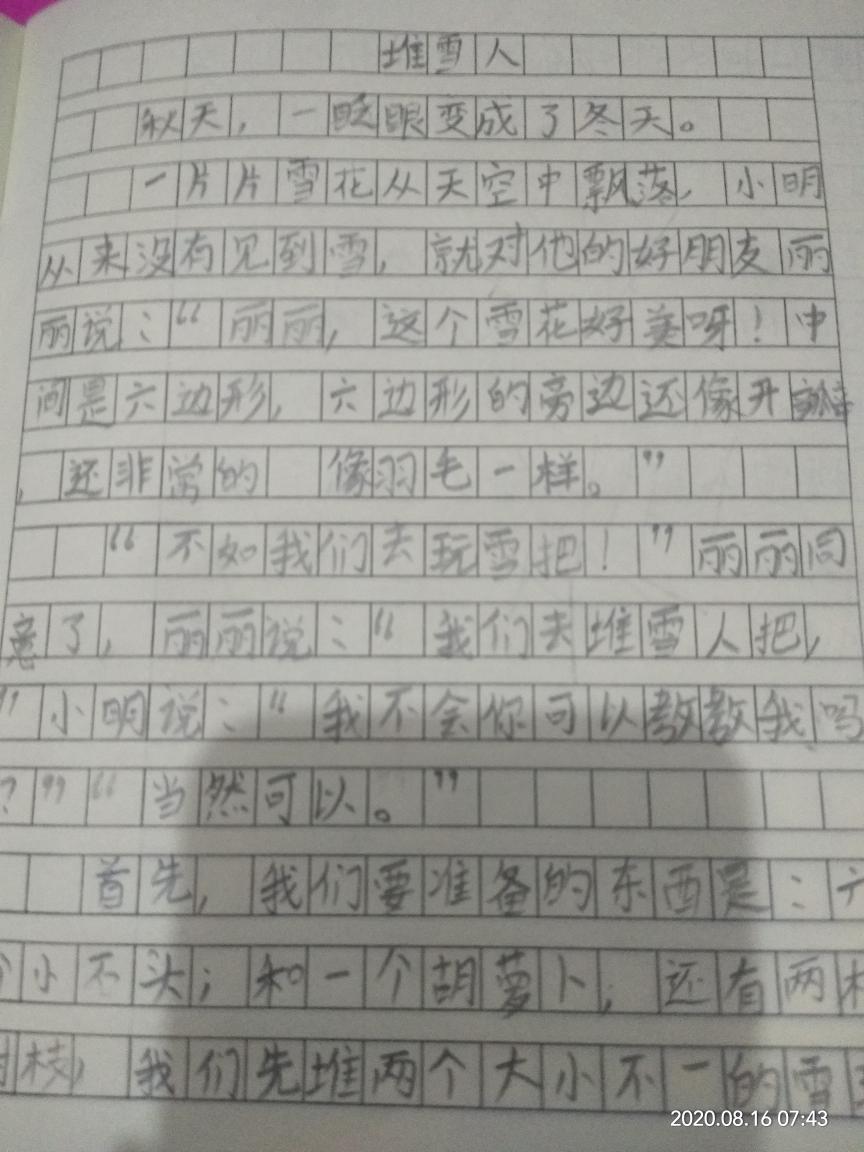 堆雪人
秋天，一眨眼变成了冬天。
一片片雪花从天空中飘落，小明
从来没有见到雪，就对他的好朋友丽
丽说：“丽丽，这个雪花好美呀！中
间是六边形，六边形的旁边还像开
，还非常的 像羽毛一样。”
“不如我们去玩雪把！”丽丽同
意了，丽丽说：“我们去堆雪人把，
”小明说：“我不会你可以教教我吗
？”“当然可以。”
首先，我们要准备的东西是：六
个小不头；和一个胡萝卜，还有两
树枝，我们先堆两个大小不一的雪
2020.08.16 07:43